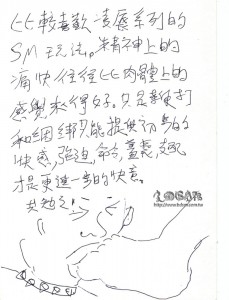 比較喜歡凌辱系列的
SM玩法。精神上的
痛快往往比肉體上的
感覺來得好。只是鞭打
和綑綁只能提供初步的
快感,強迫,命令,羞辱,
才是更進一步的快意。
共勉之!